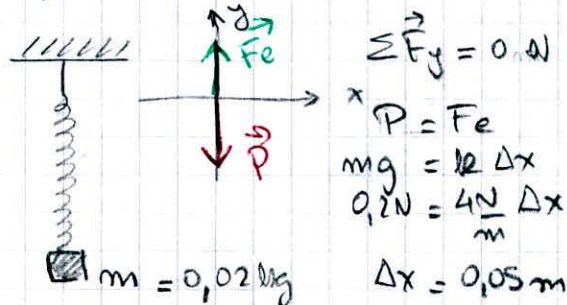 y
F⃗e
x
P⃗
m = 0,02 kg
ΣF⃗y = 0 N
P = Fe
mg = k Δx
0,2N = 4N/m Δx
Δx = 0,05 m